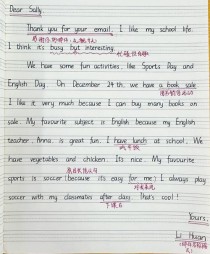 Dear Sally,
Thank you for your email. I like my school life.
I think it's busy but interesting.
We have some fun activities, like Sports Day and
English Day. On December 24th, we have a book sale.
I like it very much because I can buy many books on
sale. My favourite subject is English because my English
teacher, Anna, is great fun. I have lunch at school. We
have vegetables and chicken. It's nice. My favourite
sports is soccer (because it's easy for me) I always play
soccer with my classmates after class. that's cool!
下课后
Yours,
Li Huan